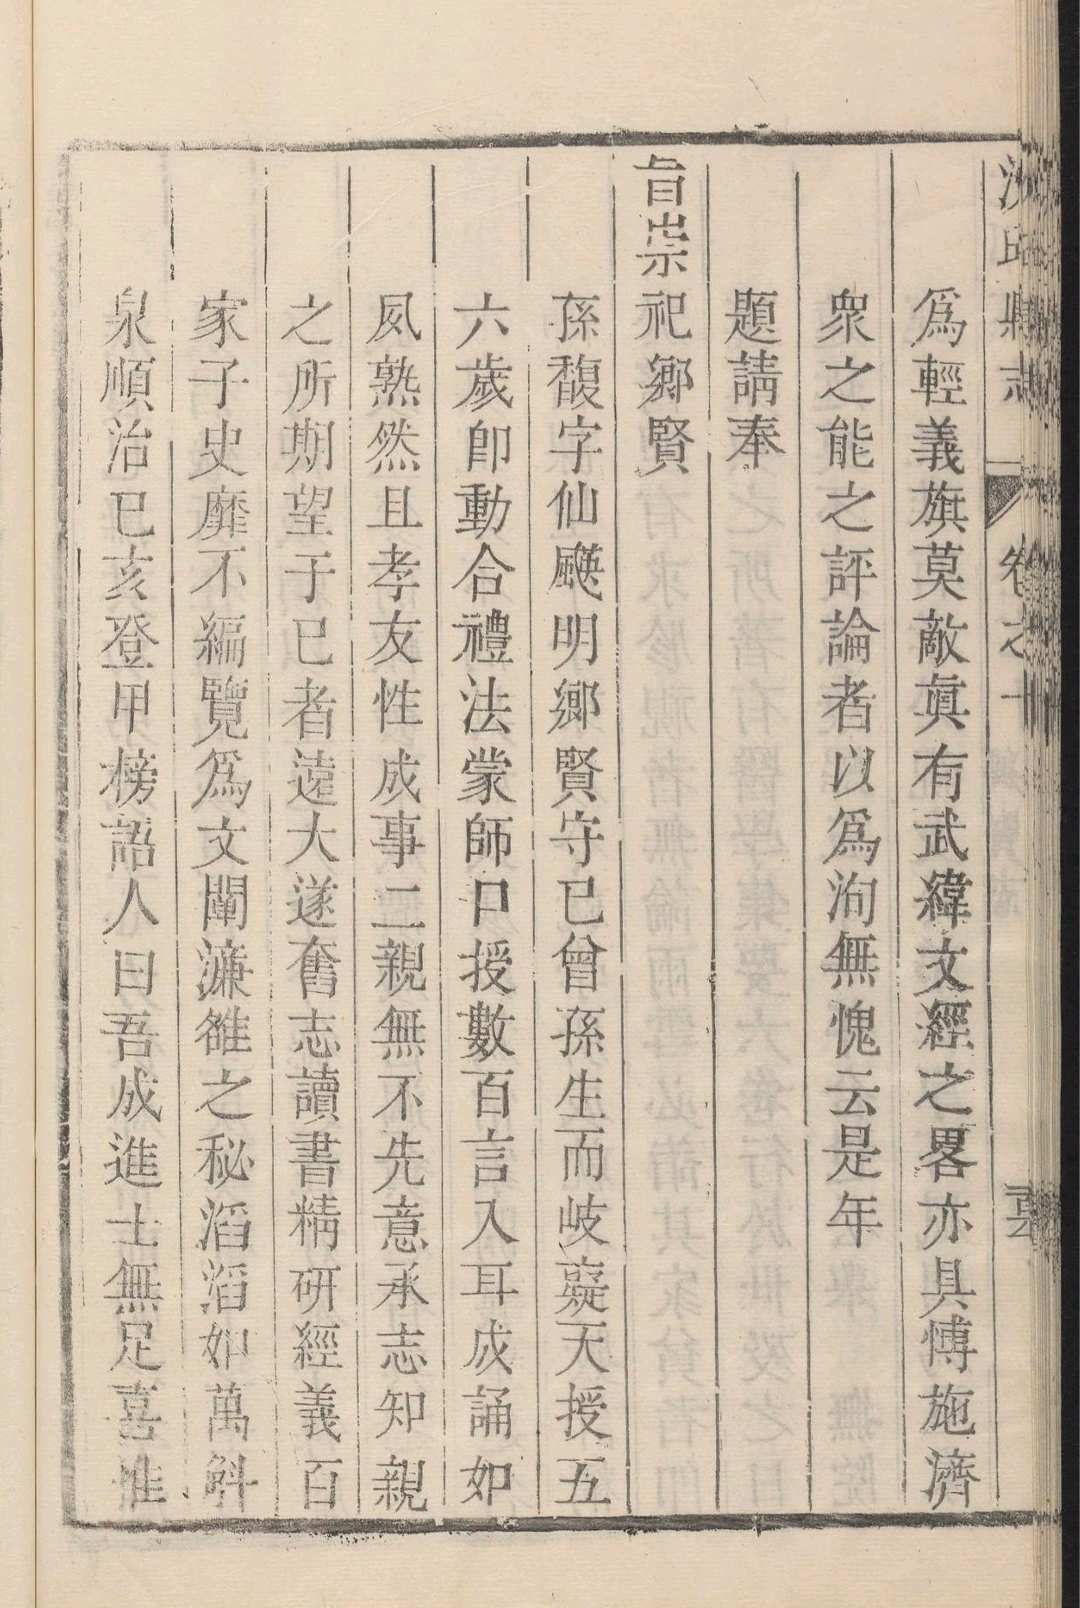 為輕義旗莫敵眞有武緯文經之畧亦具愽施濟
衆之能之評論者以為洵無愧云是年
題請奉
旨崇祀鄉賢
孫馥字仙颷明鄉賢守已曾孫生而岐嶷天授五
六歲卽動合禮法蒙師口授數百言入耳成誦如
夙熟然且孝友性成事二親無不先意承志知親
之所期望于已者遠大遂奮志讀書精研經義百
家子史靡不編覽爲文闡濂雒之秘滔滔如萬斛
泉順治已亥登甲榜語人曰吾成進士無足喜惟
沈邱縣志
卷之十